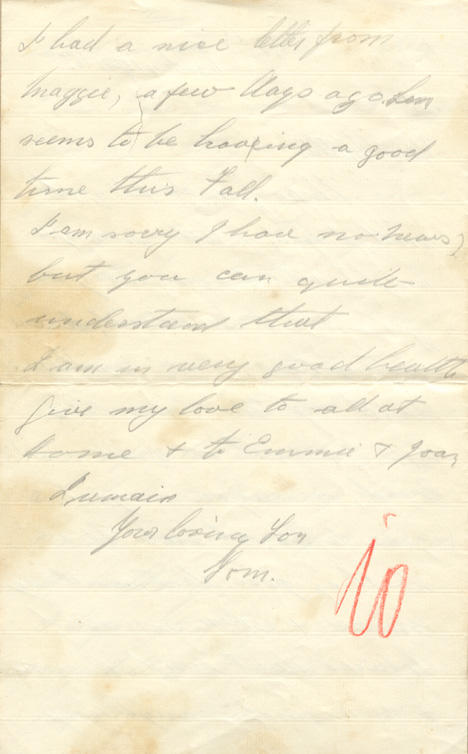 I had a nice letter from
Maggie, a few days ago. Lem
seems to be having a good
time this Fall.
I am sorry I have no news,
but you can quite
understand that
I am in very good health
Give my love to all at
home & to Emmie &
I remain
Your loving Son
Tom.
10